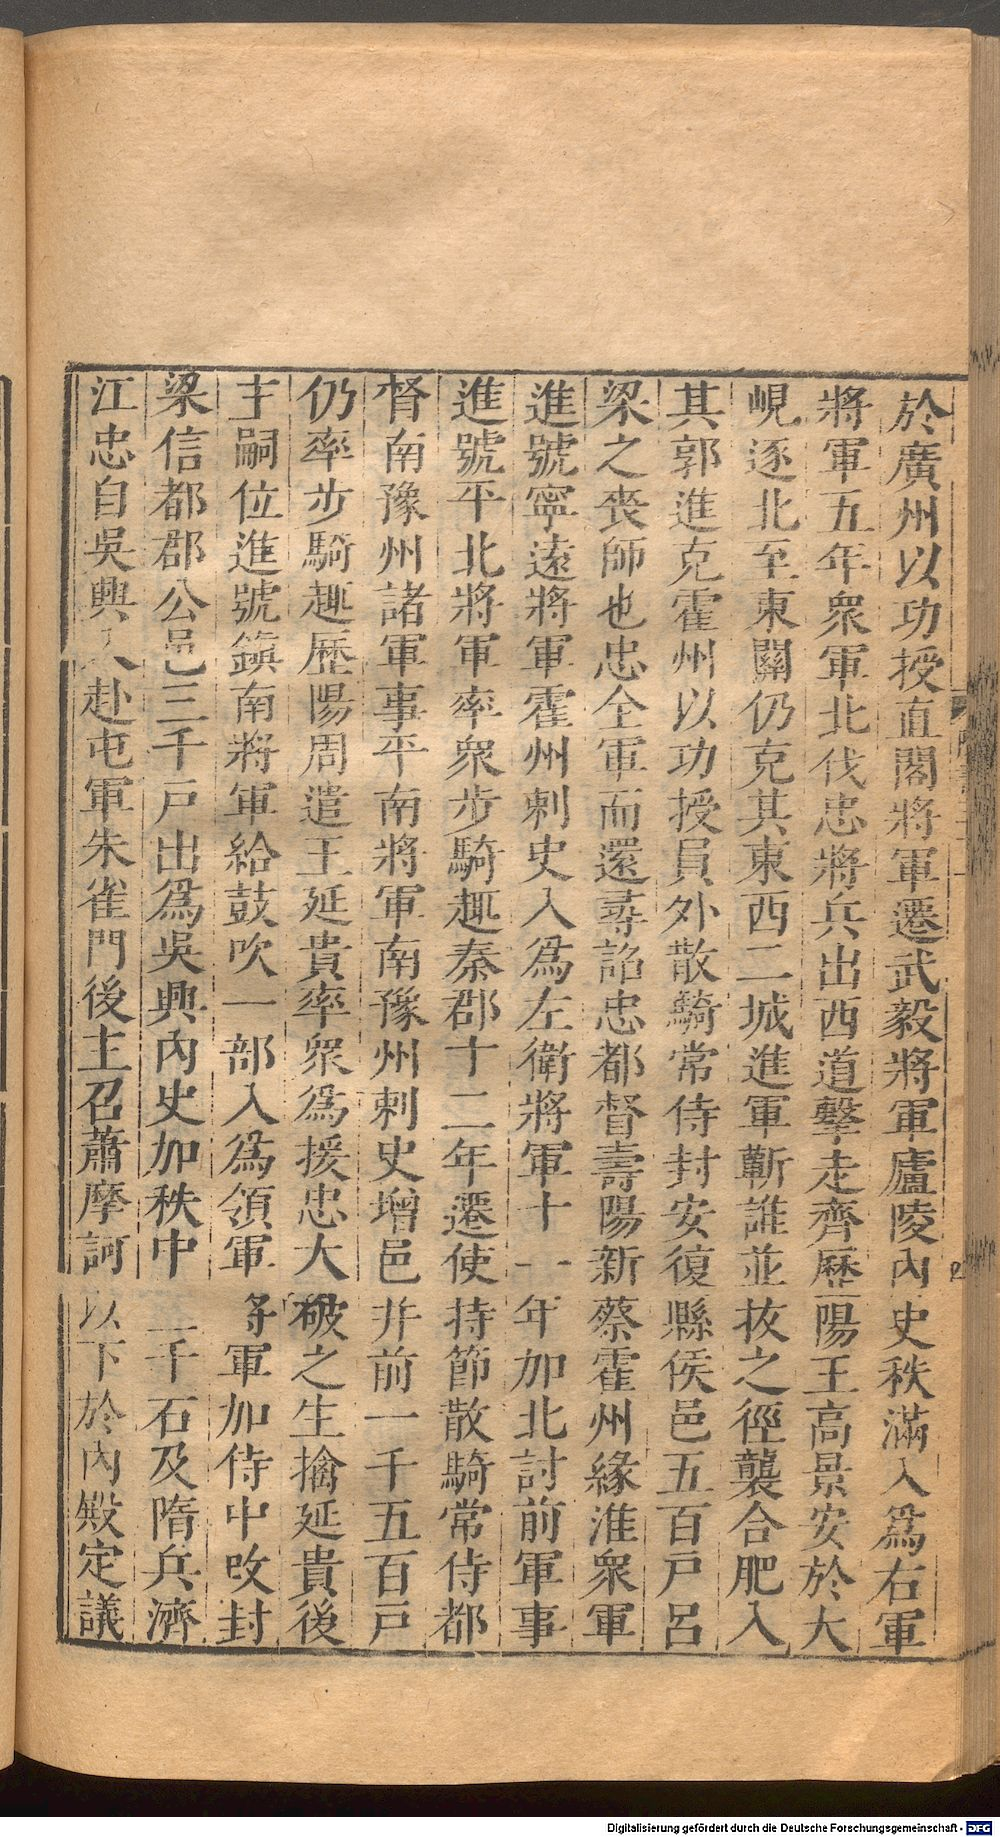 於廣州以功授直閣將軍遷武毅將軍廬陵內史秩滿入爲右軍
將軍五年衆軍北伐忠將兵出西道擊走齊歷陽王高景安於大
峴逐北至東關仍克其東西二城進軍蘄譙並拔之徑襲合肥入
其郭進克霍州以功授員外散騎常侍封安復縣侯邑五百戸呂
梁之喪師也忠全軍而還尋詔忠都督壽陽新蔡霍州緣淮衆軍
進號寧遠將軍霍州刺史入爲左衛將軍十一年加北討前軍事
進號平北將軍率衆步騎趣秦郡十二年遷使持節散騎常侍都
督南豫州諸軍事平南將軍南豫州刺史增邑幷前一千五百戸
仍率步騎趣歷陽周遣王延貴率衆爲援忠大破之生擒延貴後
主嗣位進號鎭南將軍給鼓吹一部入爲領軍將軍加侍中改封
梁信都郡公邑三千戸出爲吳興內史加秩中二千石及隋兵濟
江忠自吳興入赴屯軍朱雀門後主召蕭摩訶以下於內殿定議
Digitalisierung gefördert durch die Deutsche Forschungsgemeinschaft - DFG